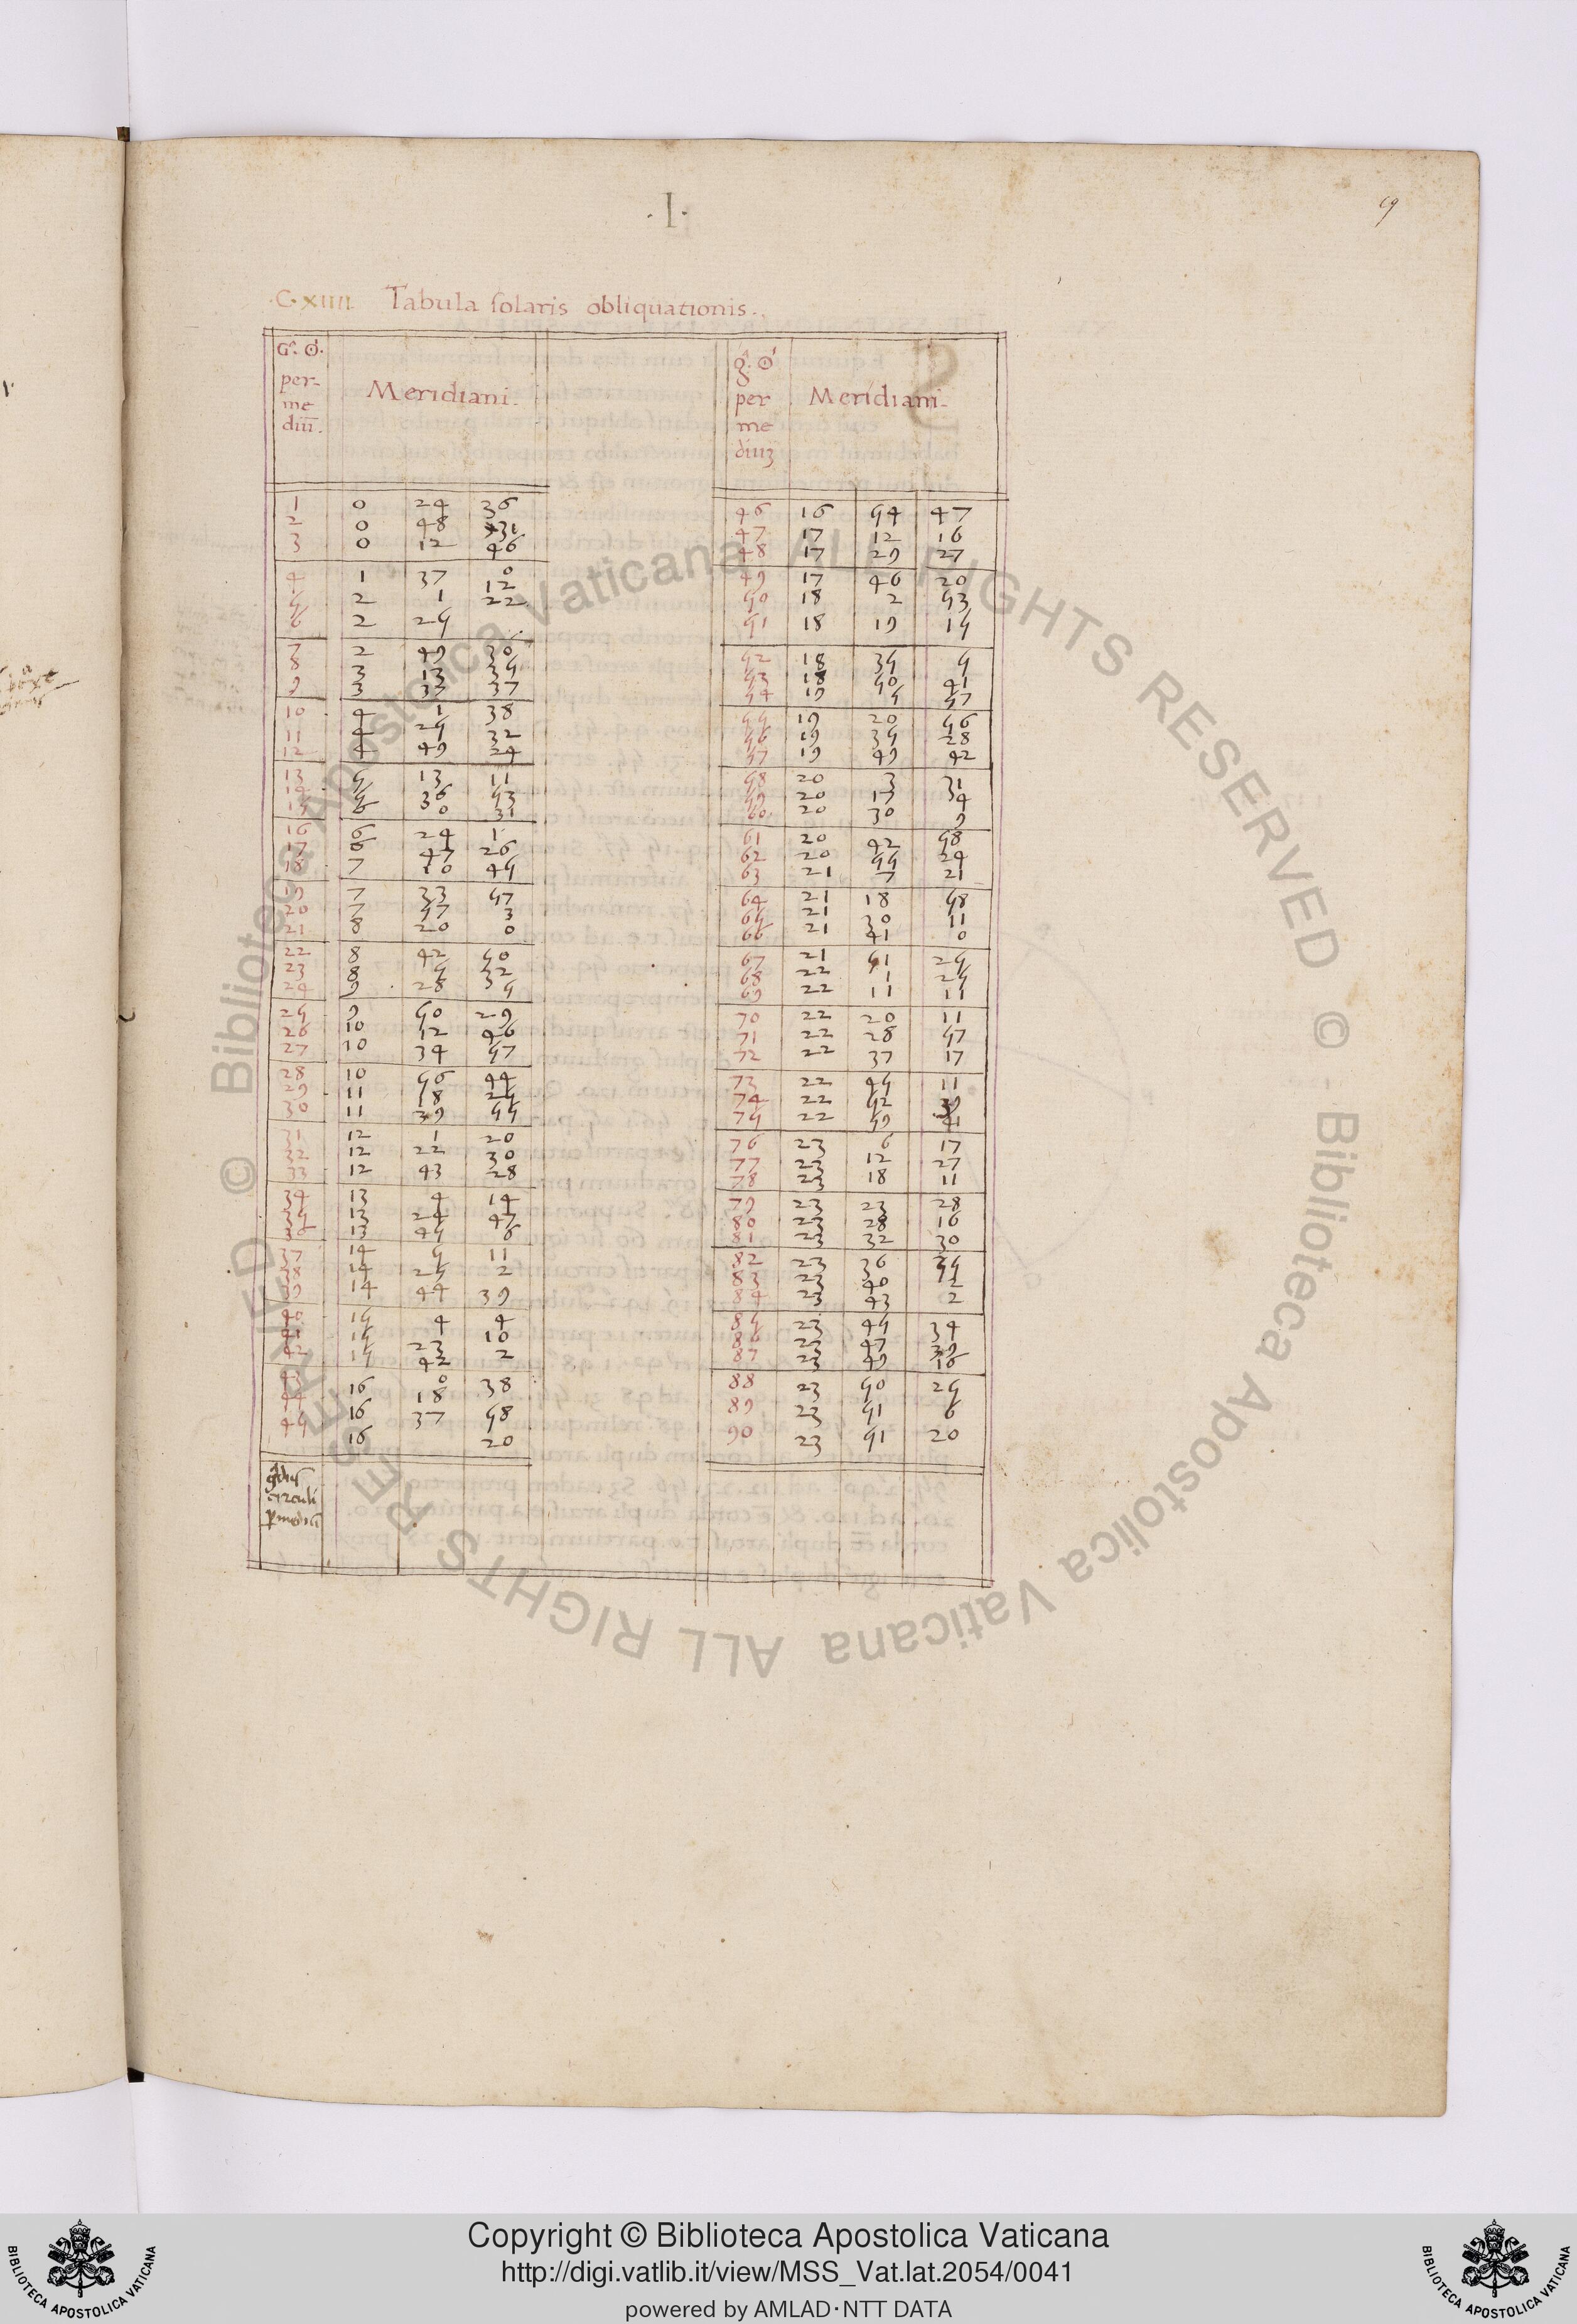 .I.
19
C. XIIII. Tabula solaris obliquationis.
per-
me
diū.
Meridiani.
1 0 24 36
2 0 48 31
3 0 12 46
4 1 37 0
5 2 1 12
6 2 25 22
7 2 49 30
8 3 13 35
9 3 37 37
10 4 1 38
11 4 25 32
12 4 49 24
13 5 13 11
14 5 36 53
15 6 0 31
16 6 24 1
17 6 47 26
18 7 10 45
19 7 33 57
20 7 57 3
21 8 20 0
22 8 42 50
23 8 5 32
24 9 28 5
25 9 50 29
26 10 12 46
27 10 34 57
28 10 56 44
29 11 18 25
30 11 39 55
31 12 1 20
32 12 22 30
33 12 43 28
34 13 4 14
35 13 24 47
36 13 45 6
37 14 5 11
38 14 25 2
39 14 44 39
40 15 4 4
41 15 23 10
42 15 42 2
43 16 0 38
44 16 18 58
45 16 37 20
circuli
per
me
diuz
Meridiani.
46 16 54 47
47 17 12 16
48 17 29 27
49 17 46 20
50 18 2 53
51 18 19 15
52 18 35 5
53 18 50 41
54 19 5 57
55 19 20 56
56 19 35 28
57 19 49 42
58 20 3 31
59 20 17 4
60 20 30 9
61 20 42 58
62 20 55 24
63 21 7 21
64 21 18 58
65 21 30 11
66 21 41 0
67 21 51 25
68 22 1 25
69 22 11 11
70 22 20 11
71 22 28 57
72 22 37 17
73 22 45 11
74 22 52 39
75 22 59 41
76 23 6 17
77 23 12 27
78 23 18 11
79 23 23 28
80 23 28 16
81 23 32 30
82 23 36 35
83 23 40 2
84 23 43 2
85 23 45 34
86 23 47 39
87 23 49 16
88 23 50 25
89 23 51 6
90 23 51 20
© Biblioteca Apostolica Vaticana ALL RIGHTS RESERVED © Biblioteca Apostolica Vaticana ALL RIGHTS RESERVED
Copyright © Biblioteca Apostolica Vaticana
http://digi.vatlib.it/view/MSS_Vat.lat.2054/0041
powered by AMLAD·NTT DATA
BIBLIOTECA APOSTOLICA VATICANA
BIBLIOTECA APOSTOLICA VATICANA